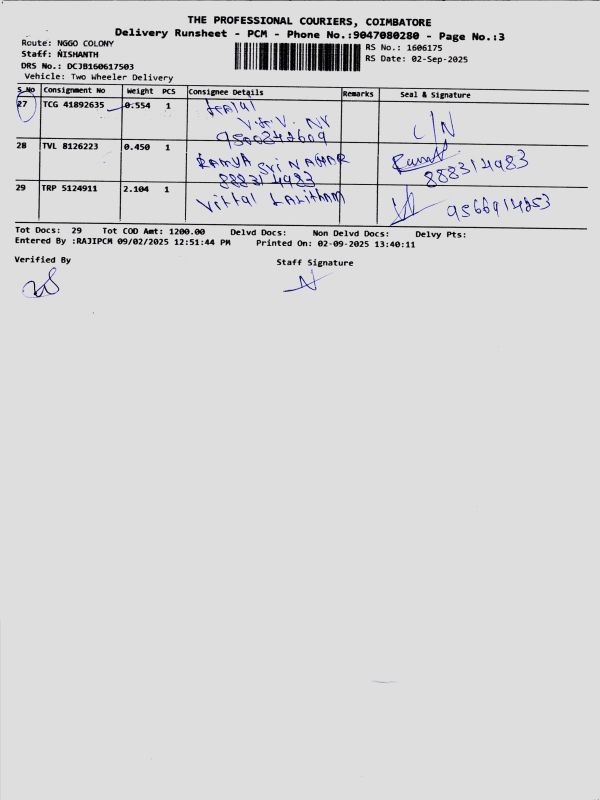 THE PROFESSIONAL COURIERS, COIMBATORE
Delivery Runsheet - PCM - Phone No.:9047080280 - Page No.:3
Route: NGGO COLONY
Staff: NISHANTH
DRS No.: DCJB160617503
Vehicle: Two Wheeler Delivery
RS No.: 1606175
RS Date: 02-Sep-2025
S No Consignment No Weight PCS Consignee Details Remarks Seal & Signature
27 TCG 41892635 0.554 1
C/N
28 TVL 8126223 0.450 1 RAMYA Sri NAGAR
888314983 888314983
29 TRP 5124911 2.104 1 Vittal 9566914253
Tot Docs: 29 Tot COD Amt: 1200.00 Delvd Docs: Non Delvd Docs: Delvy Pts:
Entered By :RAJIPCM 09/02/2025 12:51:44 PM Printed On: 02-09-2025 13:40:11
Verified By Staff Signature